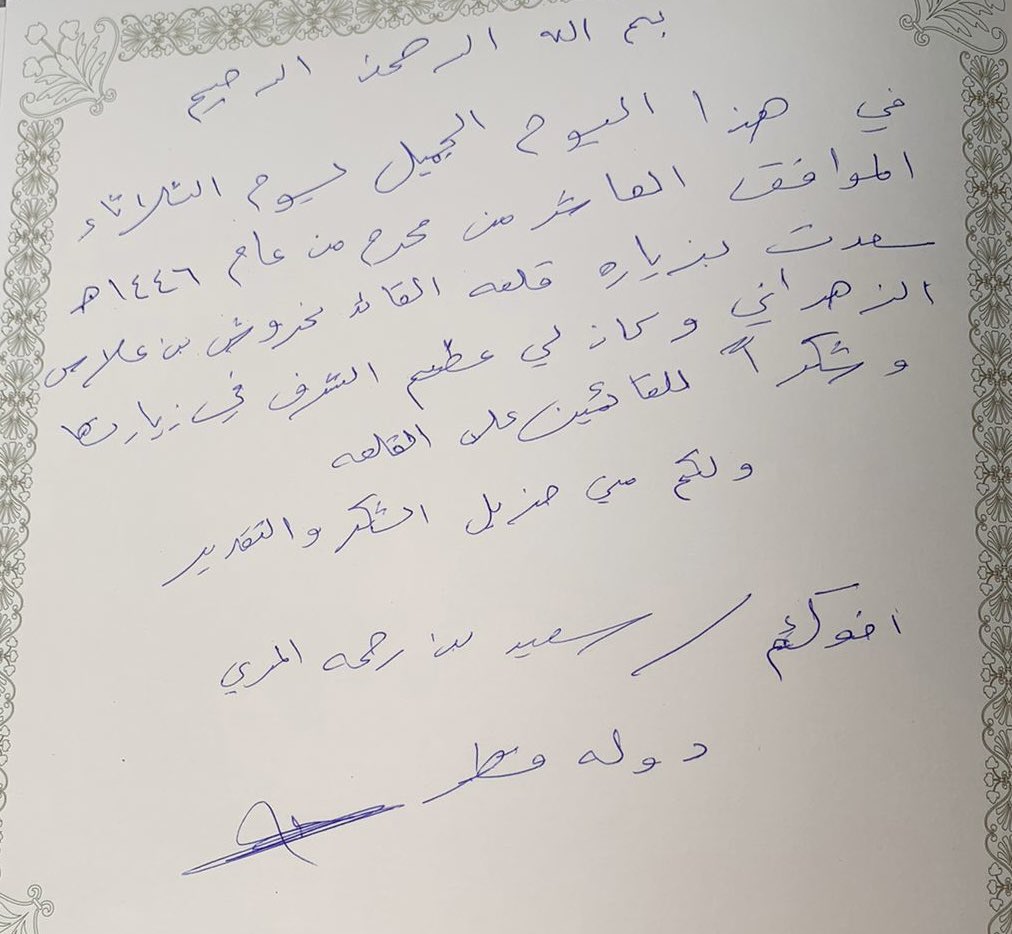 بسم الله الرحمن الرحيم
في هذا اليوم الجميل يوم الثلاثاء
الموافق العاشر من محرم من عام ١٤٤٦هـ
سعدت بزياره قلعه القائد بخروش بن علاس
الزهراني وكان لي عظيم الشرف في زيارتها
وشكراً للقائمين على القلعه
ولكم مني جزيل الشكر والتقدير
اخوكم / سعيد بن رحمه المري
دوله قطر